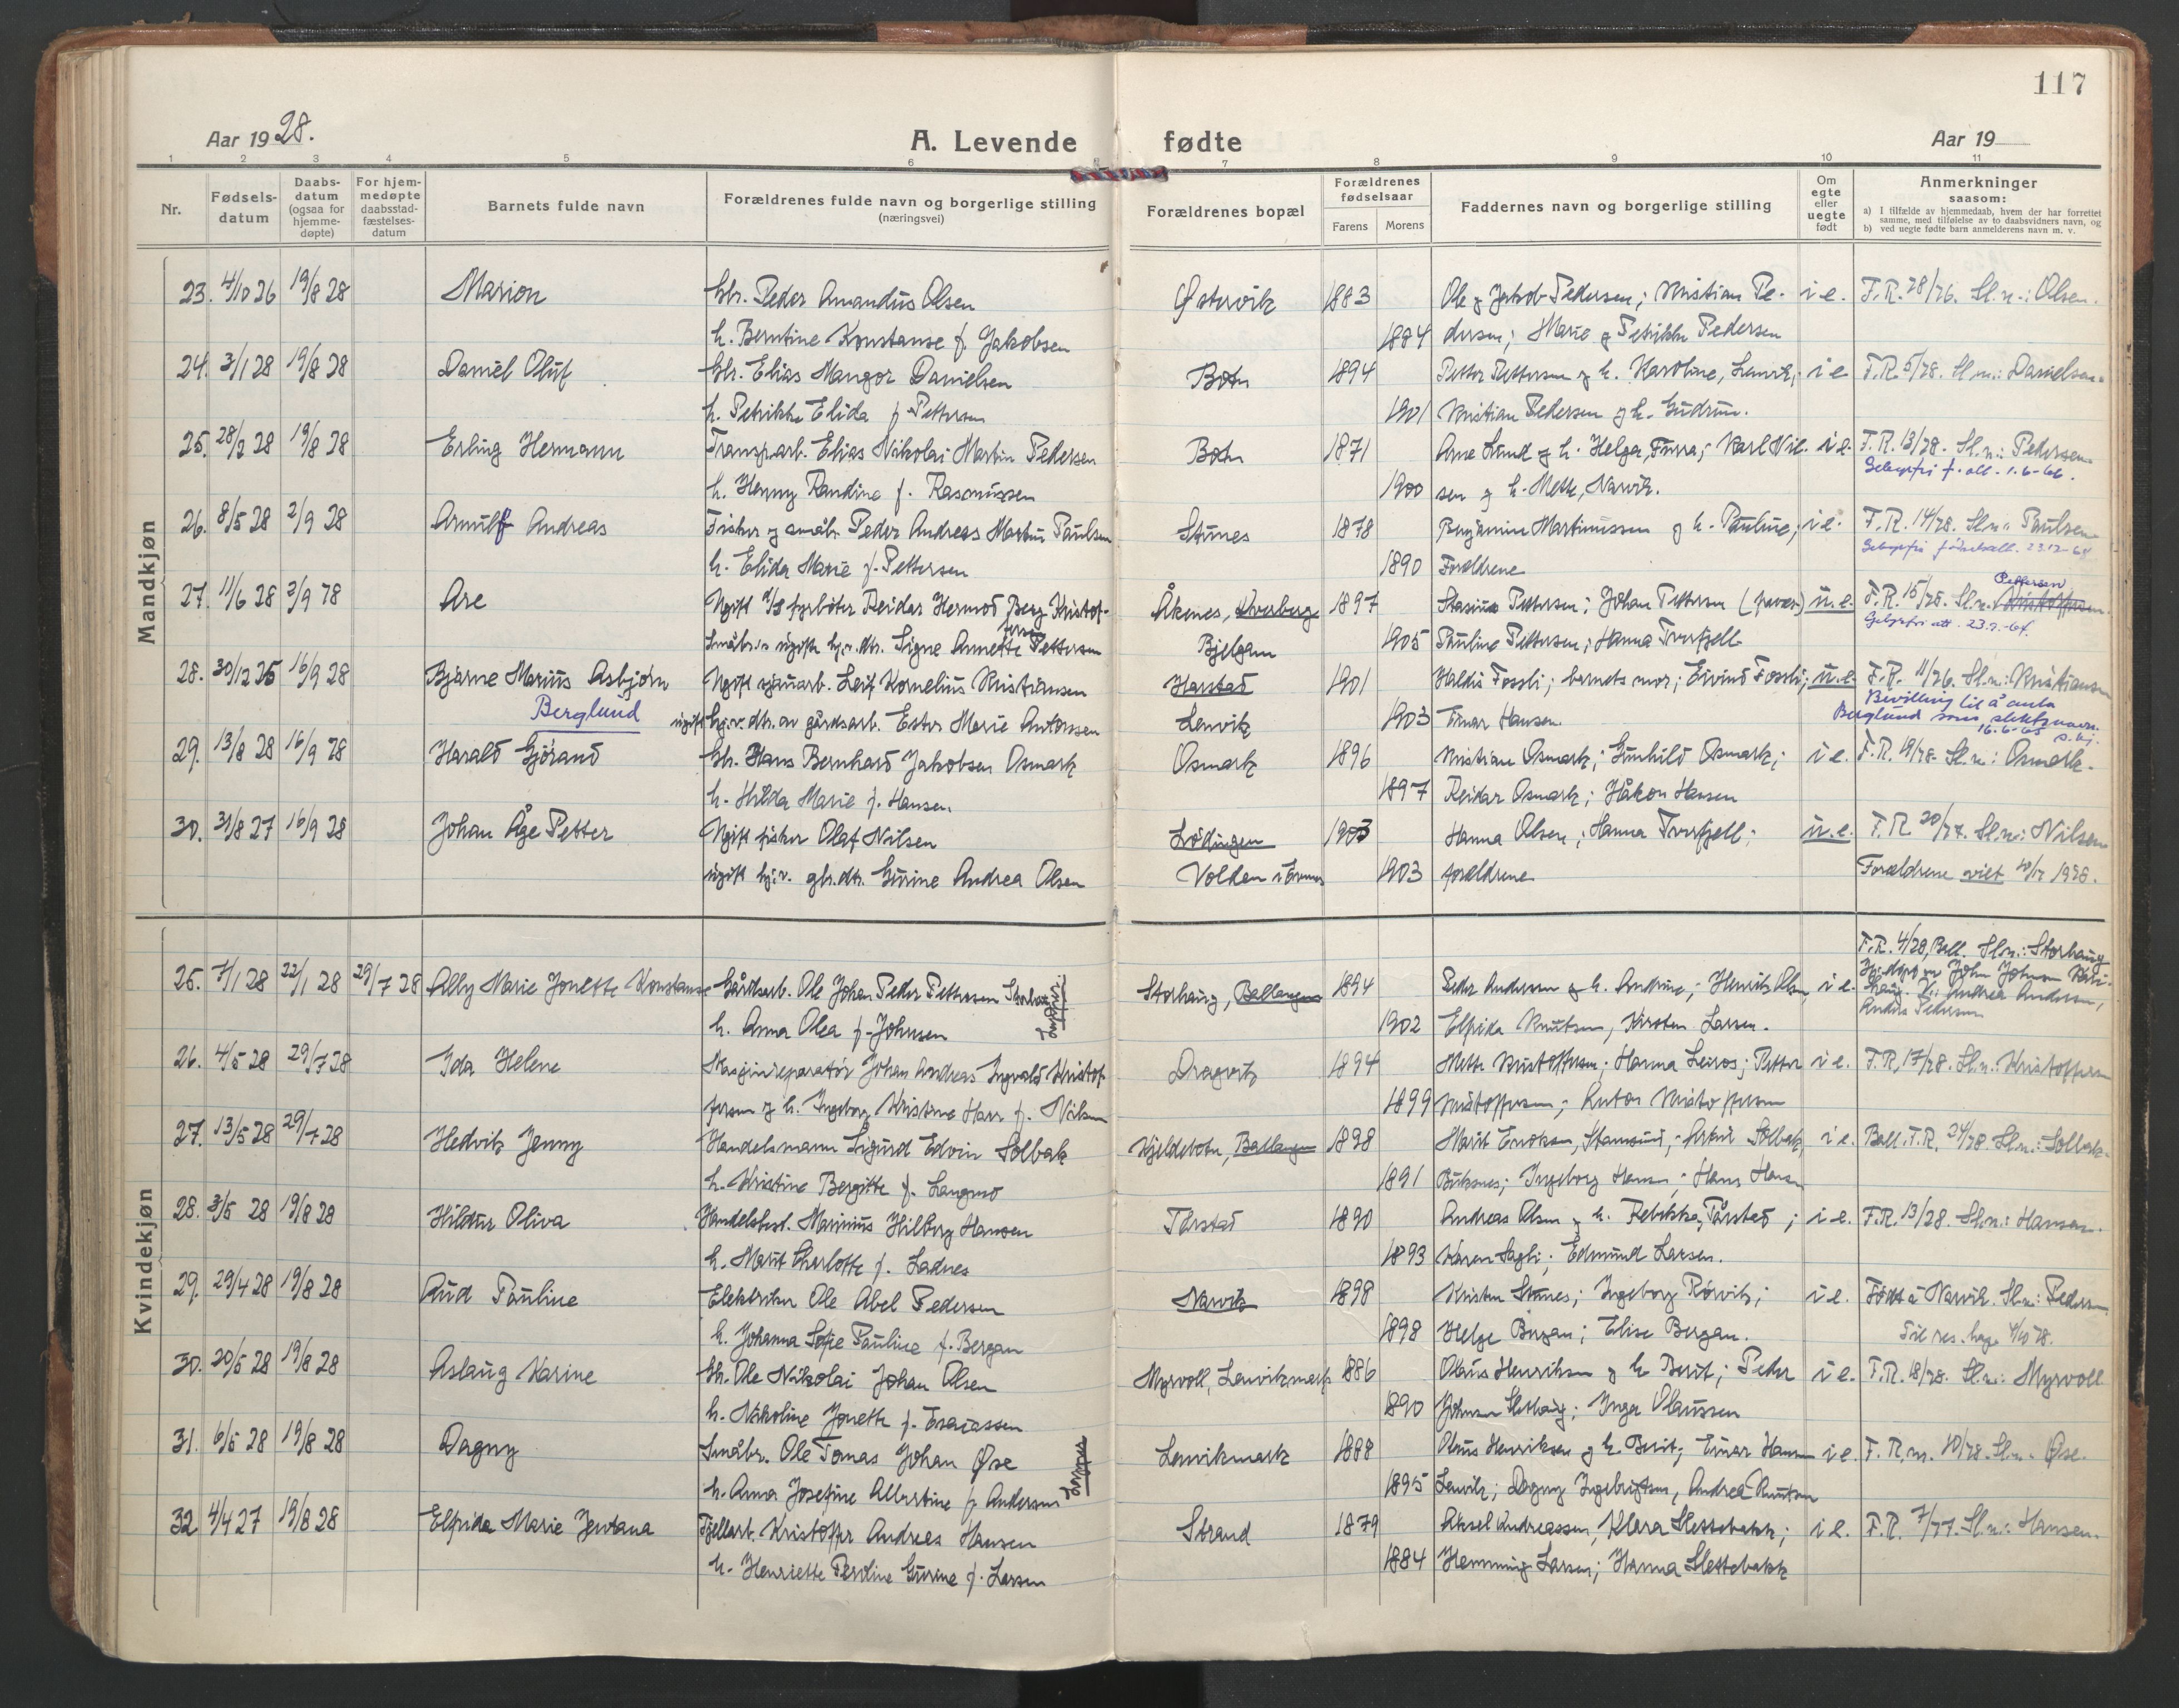 117
Aar 1928.
A. Levende fødte
Aar 19
1 2 3 4 5 6 7 8 9 10 11
Nr.
Fødsels-
datum
Daabs-
datum
(ogsaa for
hjemme-
døpte)
For hjem-
medøpte
daabsstad-
fæstelses-
datum
Barnets fulde navn
Forældrenes fulde navn og borgerlige stilling
(næringsvei)
Forældrenes bopæl
Forældrenes
fødselsaar
Farens Morens
Faddernes navn og borgerlige stilling
Om
egte
eller
uegte
født
Anmerkninger
saasom:
a) I tilfælde av hjemmedaab, hvem der har forrettet
samme, med tilføielse av to daabsvidners navn, og
b) ved uegte fødte barn anmelderens navn m. v.
Mandkjøn
23. 4/10 26 19/8 28 Marion Gbr. Peder Amandus Olsen Østervik 1883 Ole g Jakob Pedersen; Kristian Pe- i e. F.R. 28/26. Sl.n.: Olsen.
h. Berntine Konstanse f. Jakobsen 1884 dersen; Marie g Petrikke Pedersen
24. 3/1 28 19/8 28 Daniel Oluf Gbr. Elias Mangor Danielsen Botn 1894 Petter Pettersen g h. Karoline, Lenvik; i e F.R. 5/28. Sl.n.: Danielsen.
h. Petrikke Elida f. Pettersen 1901 Kristian Pedersen g h. Gudrun.
25. 28/2 28 19/8 28 Erling Hermann Transp.arb. Elias Nikolai Martin Pedersen Botn 1871 Arne Lund g h. Helga, Furra; Karl Nil- i e. F.R. 13/28. Sl.n.: Pedersen
Gebyrfri f. att. 1.6-66.
h. Henny Randine f. Rasmussen 1900 sen g h. Mette, Narvik.
26. 8/5 28 2/9 28 Arnulf Andreas Fisker g småbr. Peder Andreas Martin Paulsen Stunes 1878 Benjamin Martinussen g h. Pauline; i e. F.R. 14/28. Sl.n.: Paulsen
Gebyrfri fødselsatt. 23.12-64
h. Elida Marie f. Pettersen 1890 Foreldrene
27. 11/6 28 2/9 28 Are Ugift fyrbøter Reidar Hermod Berg Kristof- Åkenes, Kvæberg 1897 Stasius Pettersen; Johan Pettersen u.e. F.R. 15/28. Sl.n. Kristoffersen
Pettersen
Gebyrfri att. 23.2.-64.
fersen
Småbr. ugifte hj.v. dtr. Signe Annette Pettersen Bjelgam 1905 Pauline Pettersen; Hanna Tverfjell
28. 30/12 25 16/9 28 Bjarne Marius Asbjørn Ugift sjauarb. Leif Kornelius Kristiansen Harstad 1901 Haldis Fossli; barnets mor; Eivind Fossli; u.e. F.R. 11/26. Sl.n.: Kristiansen
Berglund ugift hj.v. dtr. av gårdsarb. Ester Marie Antonsen Lenvik 1903 Einar Hansen.
Bevilling til å anta
Berglund som slektsnavn.
16.6-65
29. 13/8 28 16/9 28 Harald Gjørand Gbr. Hans Bernhard Jakobsen Osmark Osmark 1896 Kristian Osmark; Gunhild Osmark; i e. F.R. 19/28. Sl.n.: Osmark.
h. Hilda Marie f. Hansen 1897 Reidar Osmark; Håkon Hansen
30. 31/8 27 16/9 28 Johan Åge Petter Ugift fisker Olaf Nilsen Lødingen 1903 Hanna Olsen; Hanna Tverfjell; u.e. F.R. 20/27. Sl.n.: Nilsen
ugift hj.v. gbr.dtr. Gurine Andrea Olsen Volden i Evenes 1903 foreldrene Forældrene viet 1928.
Kvindekjøn
25. 7/1 28 22/1 28 29/7 28 Alby Marie Jonette Konstanse Gårdsarb. Ole Johan Peder Pettersen Storhaug Storhaug, Ballangen 1894 Peder Andersen g h. Andrine; Henrik Olsen i e. F.R. 4/28, Ball. Sl.n.: Storhaug
Hj.døpt av John Johnsen
V.: Andrea Andersen,
Anders Pedersen
h. Anna Olea f. Johnsen 1902 Elfrida Knutsen, Kirsten Larsen.
26. 4/5 28 29/7 28 Ida Helene Maskinreparatør Johan Andreas Ingvald Kristof- Dragvik 1894 Mette Kristoffersen; Hanna Leiros; Petter i e. F.R. 17/28. Sl.n.: Kristoffersen
fersen g h. Ingeborg Kristine Harr f. Nilsen 1899 Kristoffersen; Anton Kristoffersen
27. 13/5 28 29/7 28 Hedvik Jenny Handelsmann Sigurd Edvin Solbak Kjeldebotn, Ballangen 1898 Marit Enoksen, Stamsund; Artur Solbak, i e. Ball. F.R. 24/28. Sl.n.: Solbak.
h. Kristine Bergitte f. Langmo 1891 Buksnes; Ingeborg Hansen; Hans Hansen
28. 3/5 28 19/8 28 Hildur Oliva Handelsbest. Marinius Hilberg Hansen Tårstad 1890 Andreas Olsen g h. Rebekka, Tårstad; i e. F.R. 13/28. Sl.n.: Hansen.
h. Marit Charlotte f. Ladnes 1893 Karen Sagli; Edmund Larsen.
29. 29/4 28 19/8 28 Aud Pauline Elektriker Ole Abel Pedersen Narvik 1898 Kristen Stunes; Ingeborg Rørvik; i e. Født i Narvik. Sl.n.: Pedersen
h. Johanna Sofie Pauline f. Bergan 1898 Helge Bergan; Elise Bergan.
30. 20/5 28 19/8 28 Aslaug Karine Gbr. Ole Nikolai Johan Olsen Myrvoll, Lenvikmark 1886 Olaus Henriksen g h Berit; Peder i e. F.R. 18/28. Sl.n.: Myrvoll
h. Nikoline Jonette f. Esaiassen 1890 Johnsen; Inga Olaussen
31. 6/5 28 19/8 28 Dagny Småbr. Ole Tomas Johan Øse Lenvikmark 1888 Olaus Henriksen g h. Berit; Einar Hansen i e. F.R. nr. 10/28. Sl.n. Øse.
h. Anna Josefine Albertine f. Andersen 1895 Lenvik; Dagny Ingebrigtsen, Andrea Knutsen
32 4/4 27 19/8 28 Elfrida Marie Jentana Fjellarb. Kristoffer Andreas Hansen Strand 1879 Aksel Andreassen, Klara Slettebakk; i e. F.R. 7/27. Sl.n.: Hansen.
h. Henriette Perdine Gurine f. Larsen 1884 Hemming Larsen; Hanna Slettebakk